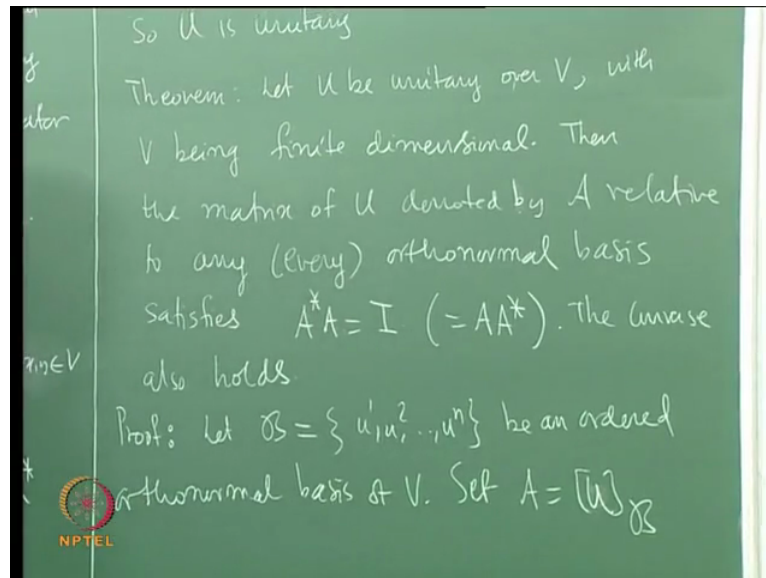 So U is unitary
y
Theorem: Let U be unitary over V, with
ator
V being finite dimensional. Then
the matrix of U denoted by A relative
to any (every) orthonormal basis
satisfies A*A = I (= AA*). The converse
x,y ∈ V
also holds.
Proof: Let ℬ = {u¹, u², .., uⁿ} be an ordered
*
orthonormal basis of V. Set A = [U]ℬ
NPTEL